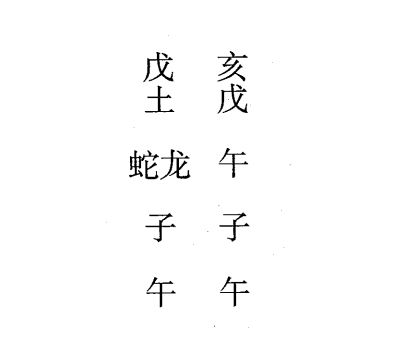 戊 亥
土 戊
蛇龙 午
子 子
午 午